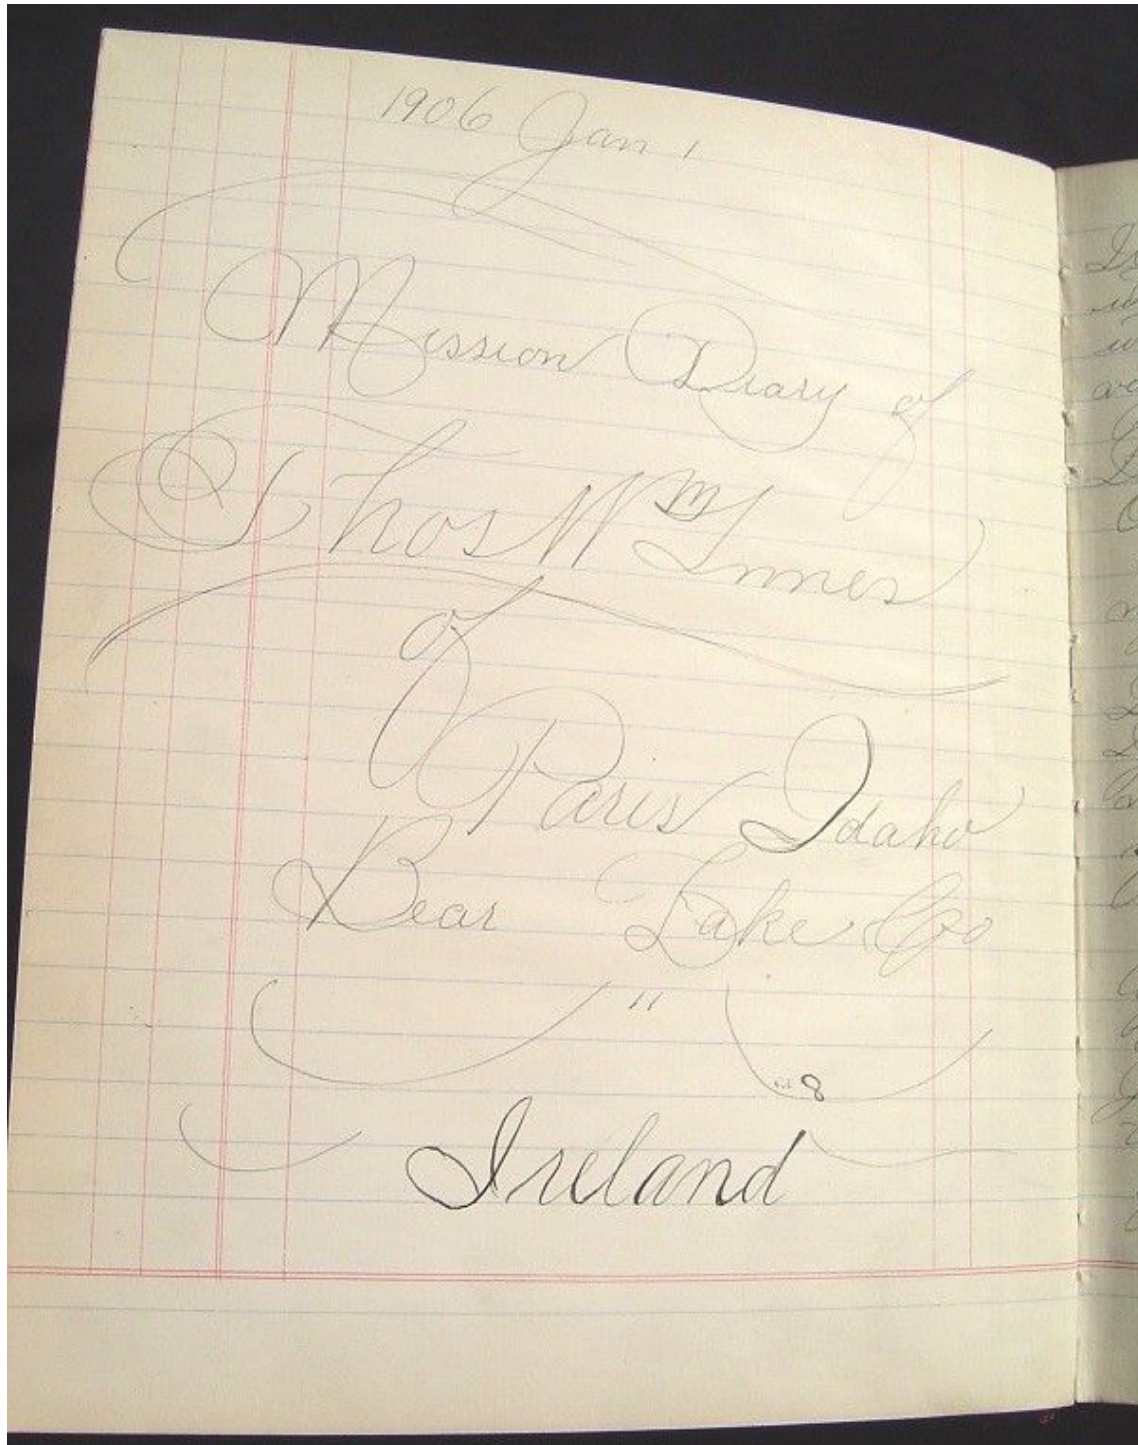 1906 Jan 1
Mission Diary of
Thos Wm Innes
of
Paris Idaho
Bear Lake Co
"
8
Ireland